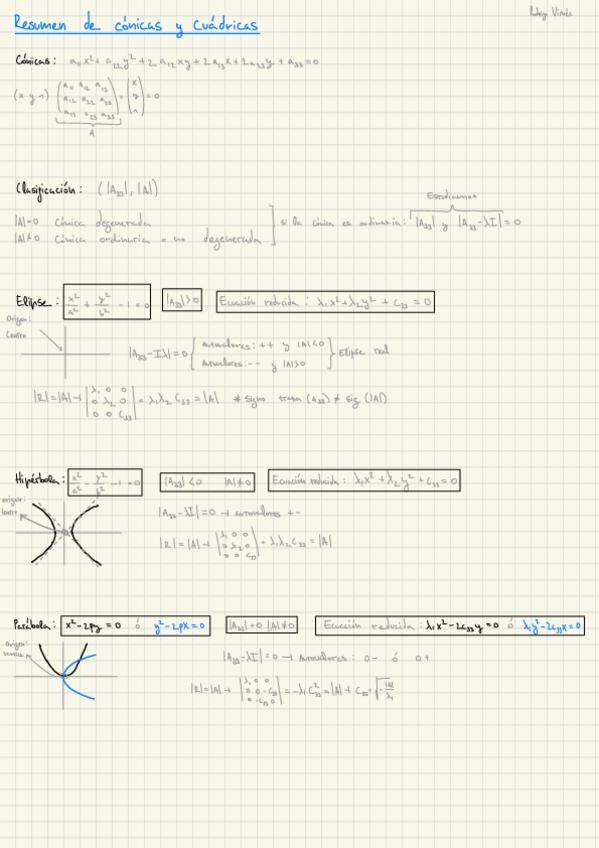 Resumen de cónicas y Cuádricas
Cónicas: a₁₁x² + a₂₂y² + 2a₁₂xy + 2a₁₃x + 2a₂₃y + a₃₃ = 0
(x y 1) (a₁₁ a₁₂ a₁₃
a₁₂ a₂₂ a₂₃
a₁₃ a₂₃ a₃₃) (x
y
1) = 0
A
Clasificación: (|A₃₃|, |A|)
Estudiamos
|A|=0 Cónica degenerada
|A|≠0 Cónica ordinaria o no degenerada
si la cónica es ordinaria: |A₃₃| y |A₃₃-λI|=0
Elipse: x²/a² + y²/b² - 1 = 0 |A₃₃|>0 Ecuación reducida: λ₁x²+λ₂y² + C₃₃ = 0
Origen:
Centro
|A₃₃-Iλ|=0 { autovalores: ++ y |A|<0
autovalores: -- y |A|>0 } Elipse real
|R|=|A|→ |λ₁ 0 0
0 λ₂ 0
0 0 C₃₃| = λ₁λ₂C₃₃ = |A| * signo traza (A₃₃) ≠ sig (|A|)
Hipérbola: x²/a² - y²/b² - 1 = 0 |A₃₃|<0 |A|≠0 Ecuación reducida: λ₁x²+λ₂y²+C₃₃=0
origen:
Centro
|A₃₃-λI|=0 → autovalores +-
|R|=|A|→ |λ₁ 0 0
0 λ₂ 0
0 0 C₃₃| = λ₁λ₂C₃₃ = |A|
Parábola: x²-2py=0 ó y²-2px=0 |A₃₃|=0 |A|≠0 Ecuación reducida: λ₁x²-2C₃₃y=0 ó λ₁y²-2C₃₃x=0
origen:
vértice
|A₃₃-λI|=0 → Autovalores: 0- ó 0+
|R|=|A|→ |λ₁ 0 0
0 0 -C₃₃
0 -C₃₃ 0| = -λ₁C₃₃² = |A|→ C₃₃=√-|A|/λ₁